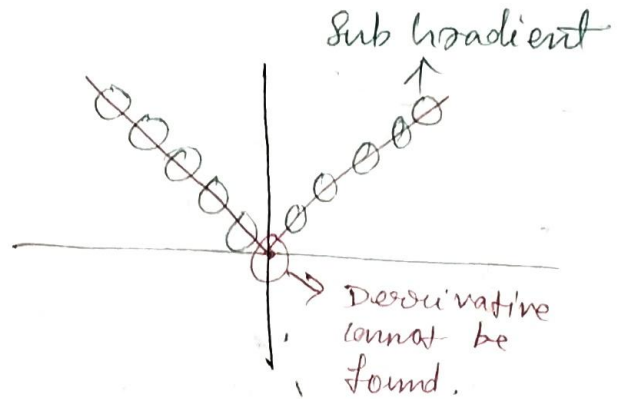 Sub Gradient
Derrivative
cannot be
found.